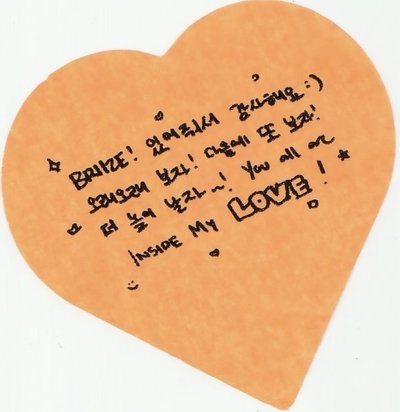 BRIIZE! 있어줘서 감사해요 :)
오래오래 보자! 다음에 또 보자!
더 높이 날자~! You all are
INSIDE My LOVE!